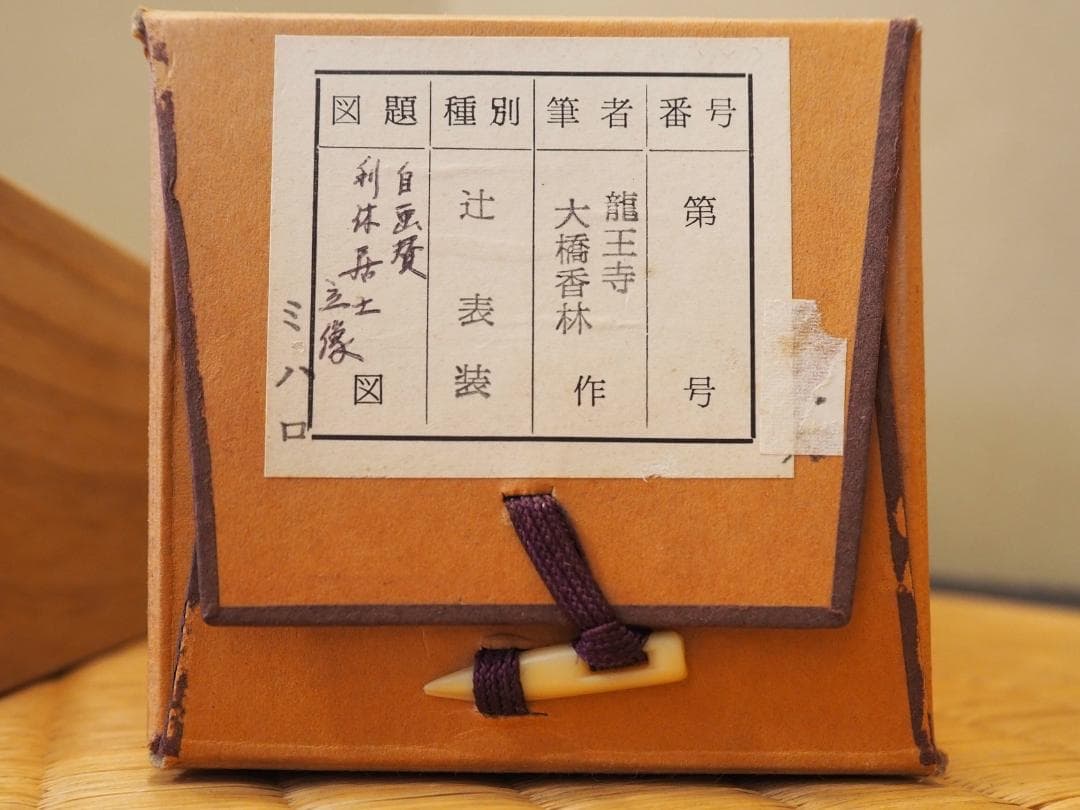 番号
第 号
筆者
龍王寺
大橋香林
作
種別
辻表装
図題
自画賛
利休居士
立像
図
ミハロ